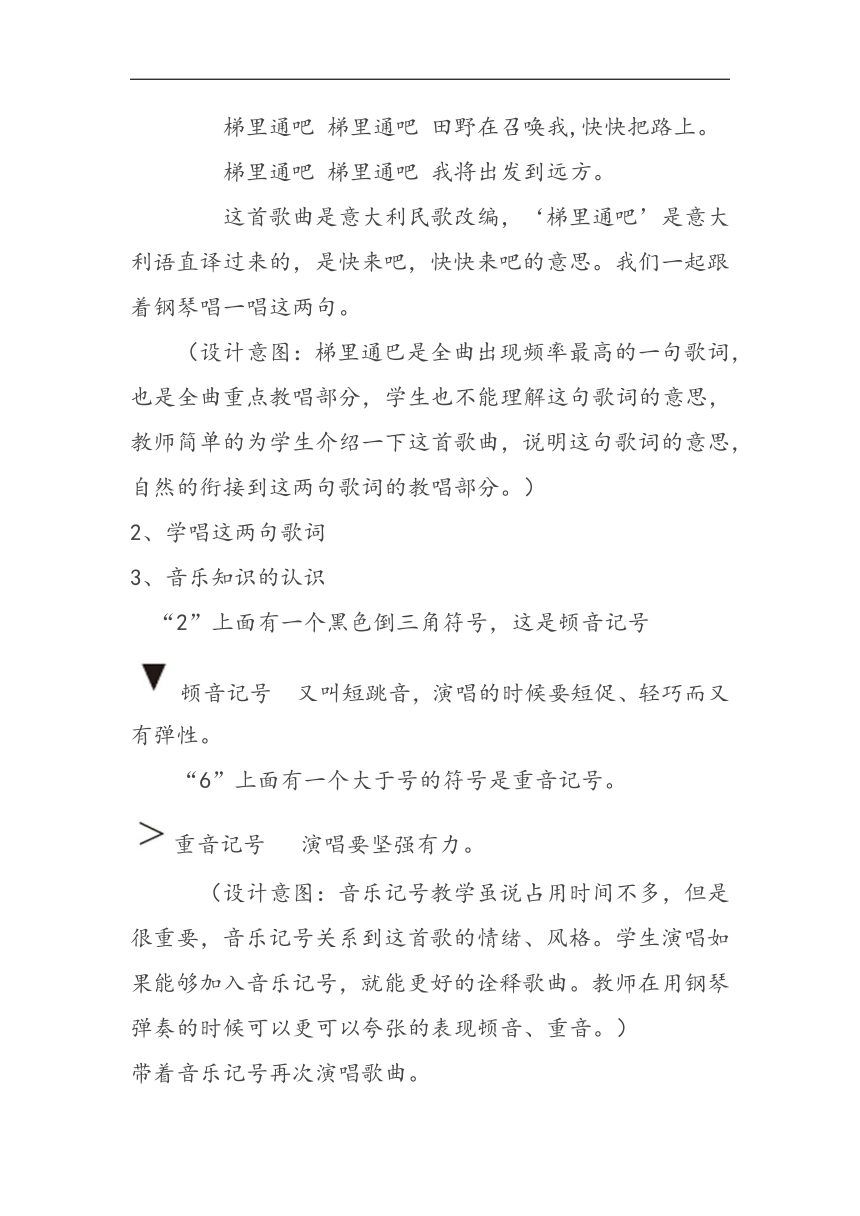 梯里通吧 梯里通吧 田野在召唤我,快快把路上。
梯里通吧 梯里通吧 我将出发到远方。
这首歌曲是意大利民歌改编，‘梯里通吧’是意大
利语直译过来的，是快来吧，快快来吧的意思。我们一起跟
着钢琴唱一唱这两句。
（设计意图：梯里通巴是全曲出现频率最高的一句歌词，
也是全曲重点教唱部分，学生也不能理解这句歌词的意思，
教师简单的为学生介绍一下这首歌曲，说明这句歌词的意思，
自然的衔接到这两句歌词的教唱部分。）
2、学唱这两句歌词
3、音乐知识的认识
“2”上面有一个黑色倒三角符号，这是顿音记号
▼ 顿音记号 又叫短跳音，演唱的时候要短促、轻巧而又
有弹性。
“6”上面有一个大于号的符号是重音记号。
> 重音记号 演唱要坚强有力。
（设计意图：音乐记号教学虽说占用时间不多，但是
很重要，音乐记号关系到这首歌的情绪、风格。学生演唱如
果能够加入音乐记号，就能更好的诠释歌曲。教师在用钢琴
弹奏的时候可以更可以夸张的表现顿音、重音。）
带着音乐记号再次演唱歌曲。